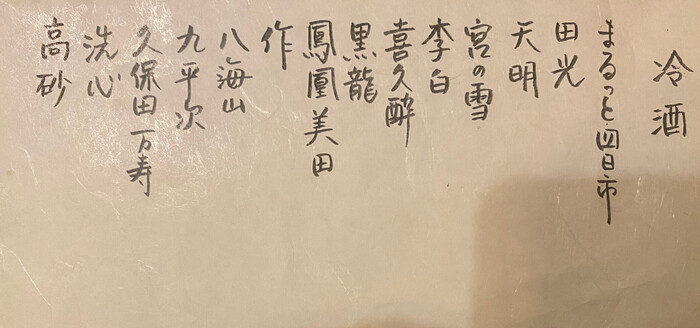 冷酒
まるっと四日市
田光
天明
宮の雪
李白
喜久酔
黒龍
鳳凰美田
作
八海山
九平次
久保田 万寿
洗心
高砂